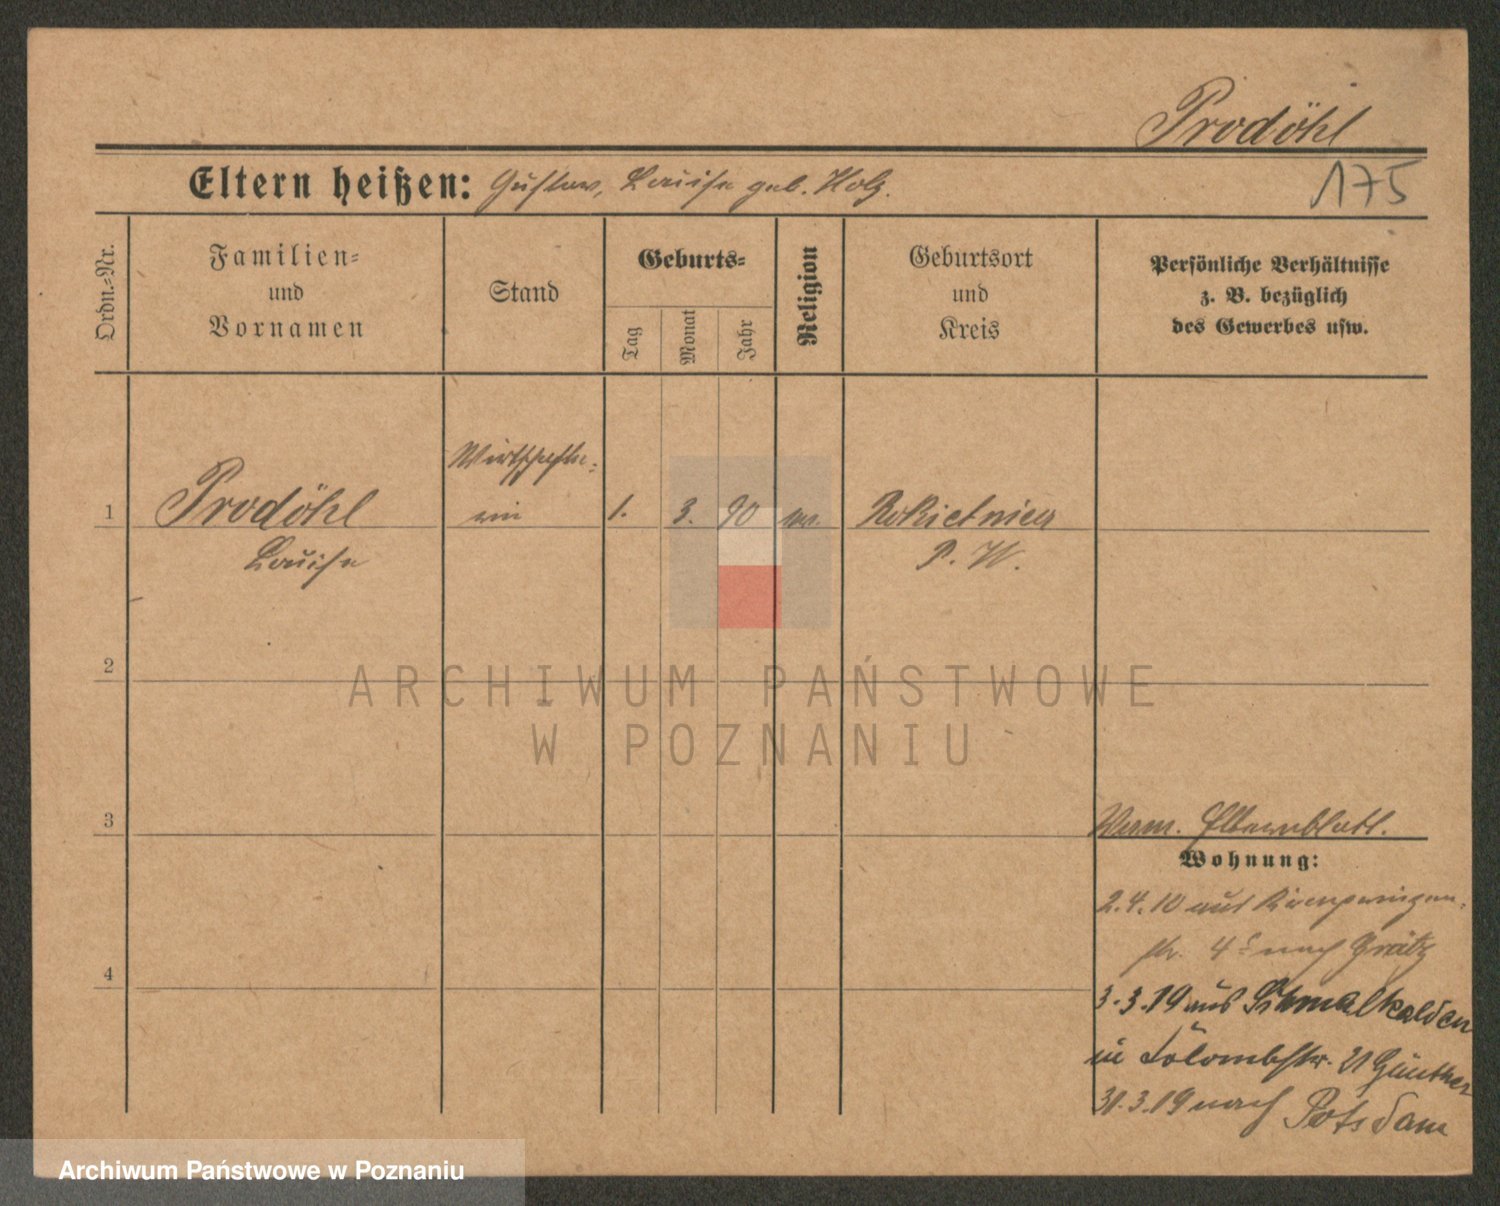 Prodöhl
175
Eltern heißen: Gustav, Louise geb. Holz.
Ordn.-Nr.
Familien-
und
Vornamen
Stand
Geburts-
Tag
Monat
Jahr
Religion
Geburtsort
und
Kreis
Persönliche Verhältnisse
z. B. bezüglich
des Gewerbes usw.
1
Prodöhl
Louise
Wirtschafte-
rin
1.
3.
90
ev.
Rokietnica
P. W.
2
3
4
Verm. Elternblatt.
Wohnung:
2.4.10 aus
str. 4 nach Grätz
3.3.19 aus Schmalkalden
in 21 Günther
31.3.19 nach Potsdam
ARCHIWUM PAŃSTWOWE
W POZNANIU
Archiwum Państwowe w Poznaniu